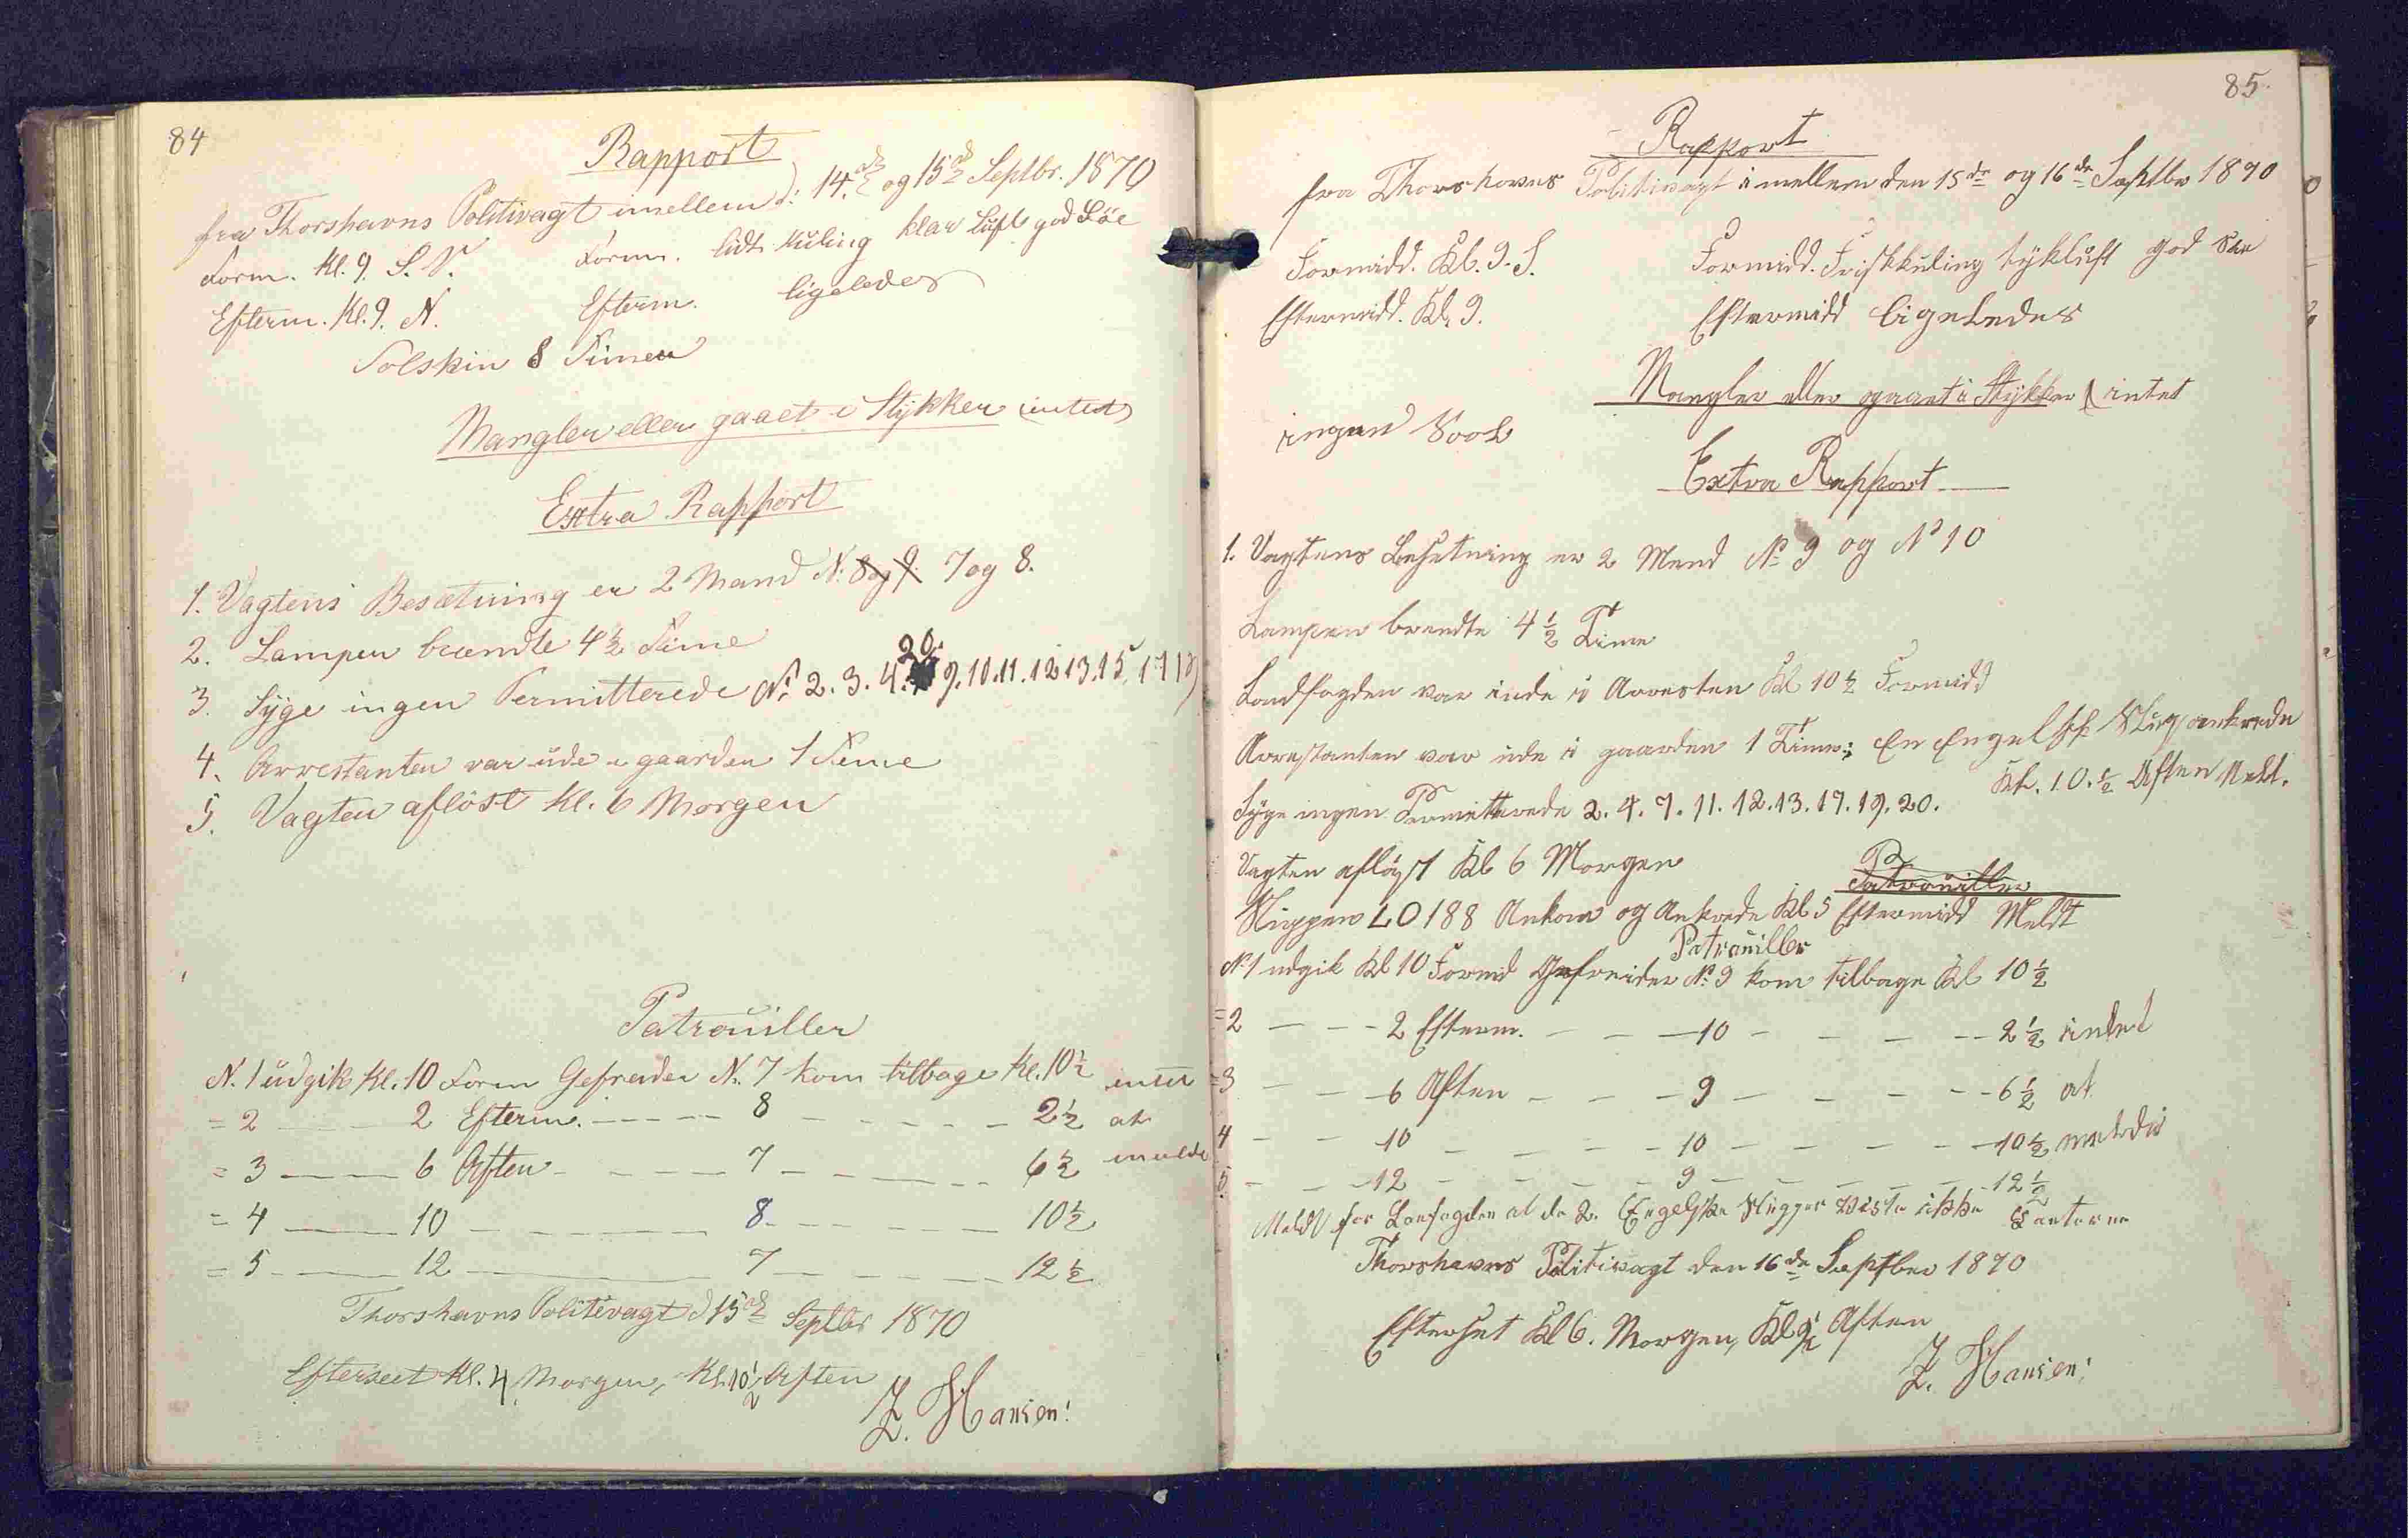 84
Rapport
fra Thorshavns Politivagt imellem d: 14de og 15de Septbr. 1870
Form. Kl. 9. S.V. Form. lidt Kuling klar Luft god Söe
Efterm. Kl. 9. N. Efterm. ligeledes
Solskin 8 Timer
Mangler eller gaaet i Stykker intet
Extra Rapport
1. Vagtens Besætning er 2 Mand N. 8 og 9. 7 og 8.
2. Lampen brændte 4½ Time
20.
3. Syge ingen Permitterede N. 2. 3. 4. 9. 10. 11. 12 13. 15. 17 19
4. Arrestanten var ude i gaarden 1 Time
5. Vagten aflöst Kl. 6 Morgen
Patrouiller
N. 1 udgik Kl. 10 Form Gefreider N. 7 kom tilbage Kl. 10½ intet
= 2 — 2 Efterm. — 8 — 2½ at
= 3 — 6 Aften — 7 — 6½ melde
= 4 — 10 — 8 — 10½
= 5 — 12 — 7 — 12½
Thorshavns Politivagt d 15de Septbr 1870
Efterseet Kl. 4 Morgen, Kl. 10½ Aften
Z. Hansen!
85.
Rapport
fra Thorshavns Politivagt imellem den 15de og 16de Septbr 1870
Formidd. Kl. 9. S. Formidd. Friskkuling tykluft god Søe
Eftermidd. Kl. 9. Eftermidd ligeledes
Mangler eller gaaet i Stykker intet
ingen Sool
Extra Rapport
1. Vagtens Besetning er 2 Mend No 9 og No 10
Lampen brendte 4½ Time
Landfogden var inde i Arresten Kl 10½ Formidd
Arrestanten var ude i gaarden 1 Time; En Engelsk Slup ankrede
Kl. 10.½ Aften Meldt.
Syge ingen Permitterede 2. 4. 7. 11. 12. 13. 17. 19. 20.
Vagten afløst Kl 6 Morgen
Patrouiller
Sluppen LO188 Ankom og Ankrede Kl 5 Eftermidd Meldt
Patrouiller
No 1 udgik Kl 10 Formid Gefreider No 9 kom tilbage Kl 10½
= 2 — 2 Efterm. — 10 — 2½ intet
= 3 — 6 Aften — 9 — 6½ at
4 — 10 — 10 — 10½ melde
5 — 12 — 9 — 12½
Meldt for Lanfogden at de 2. Engelske Slupper viste ikke Lanterne
Thorshavns Politivagt den 16de Septber 1870
Efterset Kl 6. Morgen, Kl Aften
Z. Hansen!